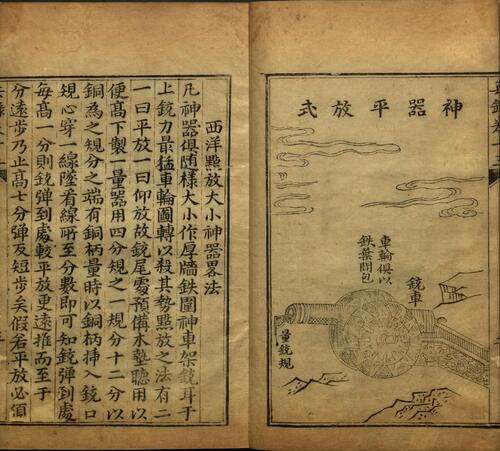 神器平放式
銃車
車輪俱以
鉄葉間包
量銃規
西洋點放大小神器畧法
凡神器俱随樣大小作厚墻鉄圍神車架銃耳于
上銃力最猛車輪圓轉以殺其勢點放之法有二
一曰平放一曰仰放故銃尾處預偹木墊聽用以
便高下製一量器用四分規之一規分十二分以
銅為之規分之端有銅柄量時以銅柄挿入銃口
規心穿一線墜看線所至分數即可知銃彈到處
每高一分則銃彈到處較平放更遠推而至于
分遠步乃止高七分彈反短步矣假若平放必須